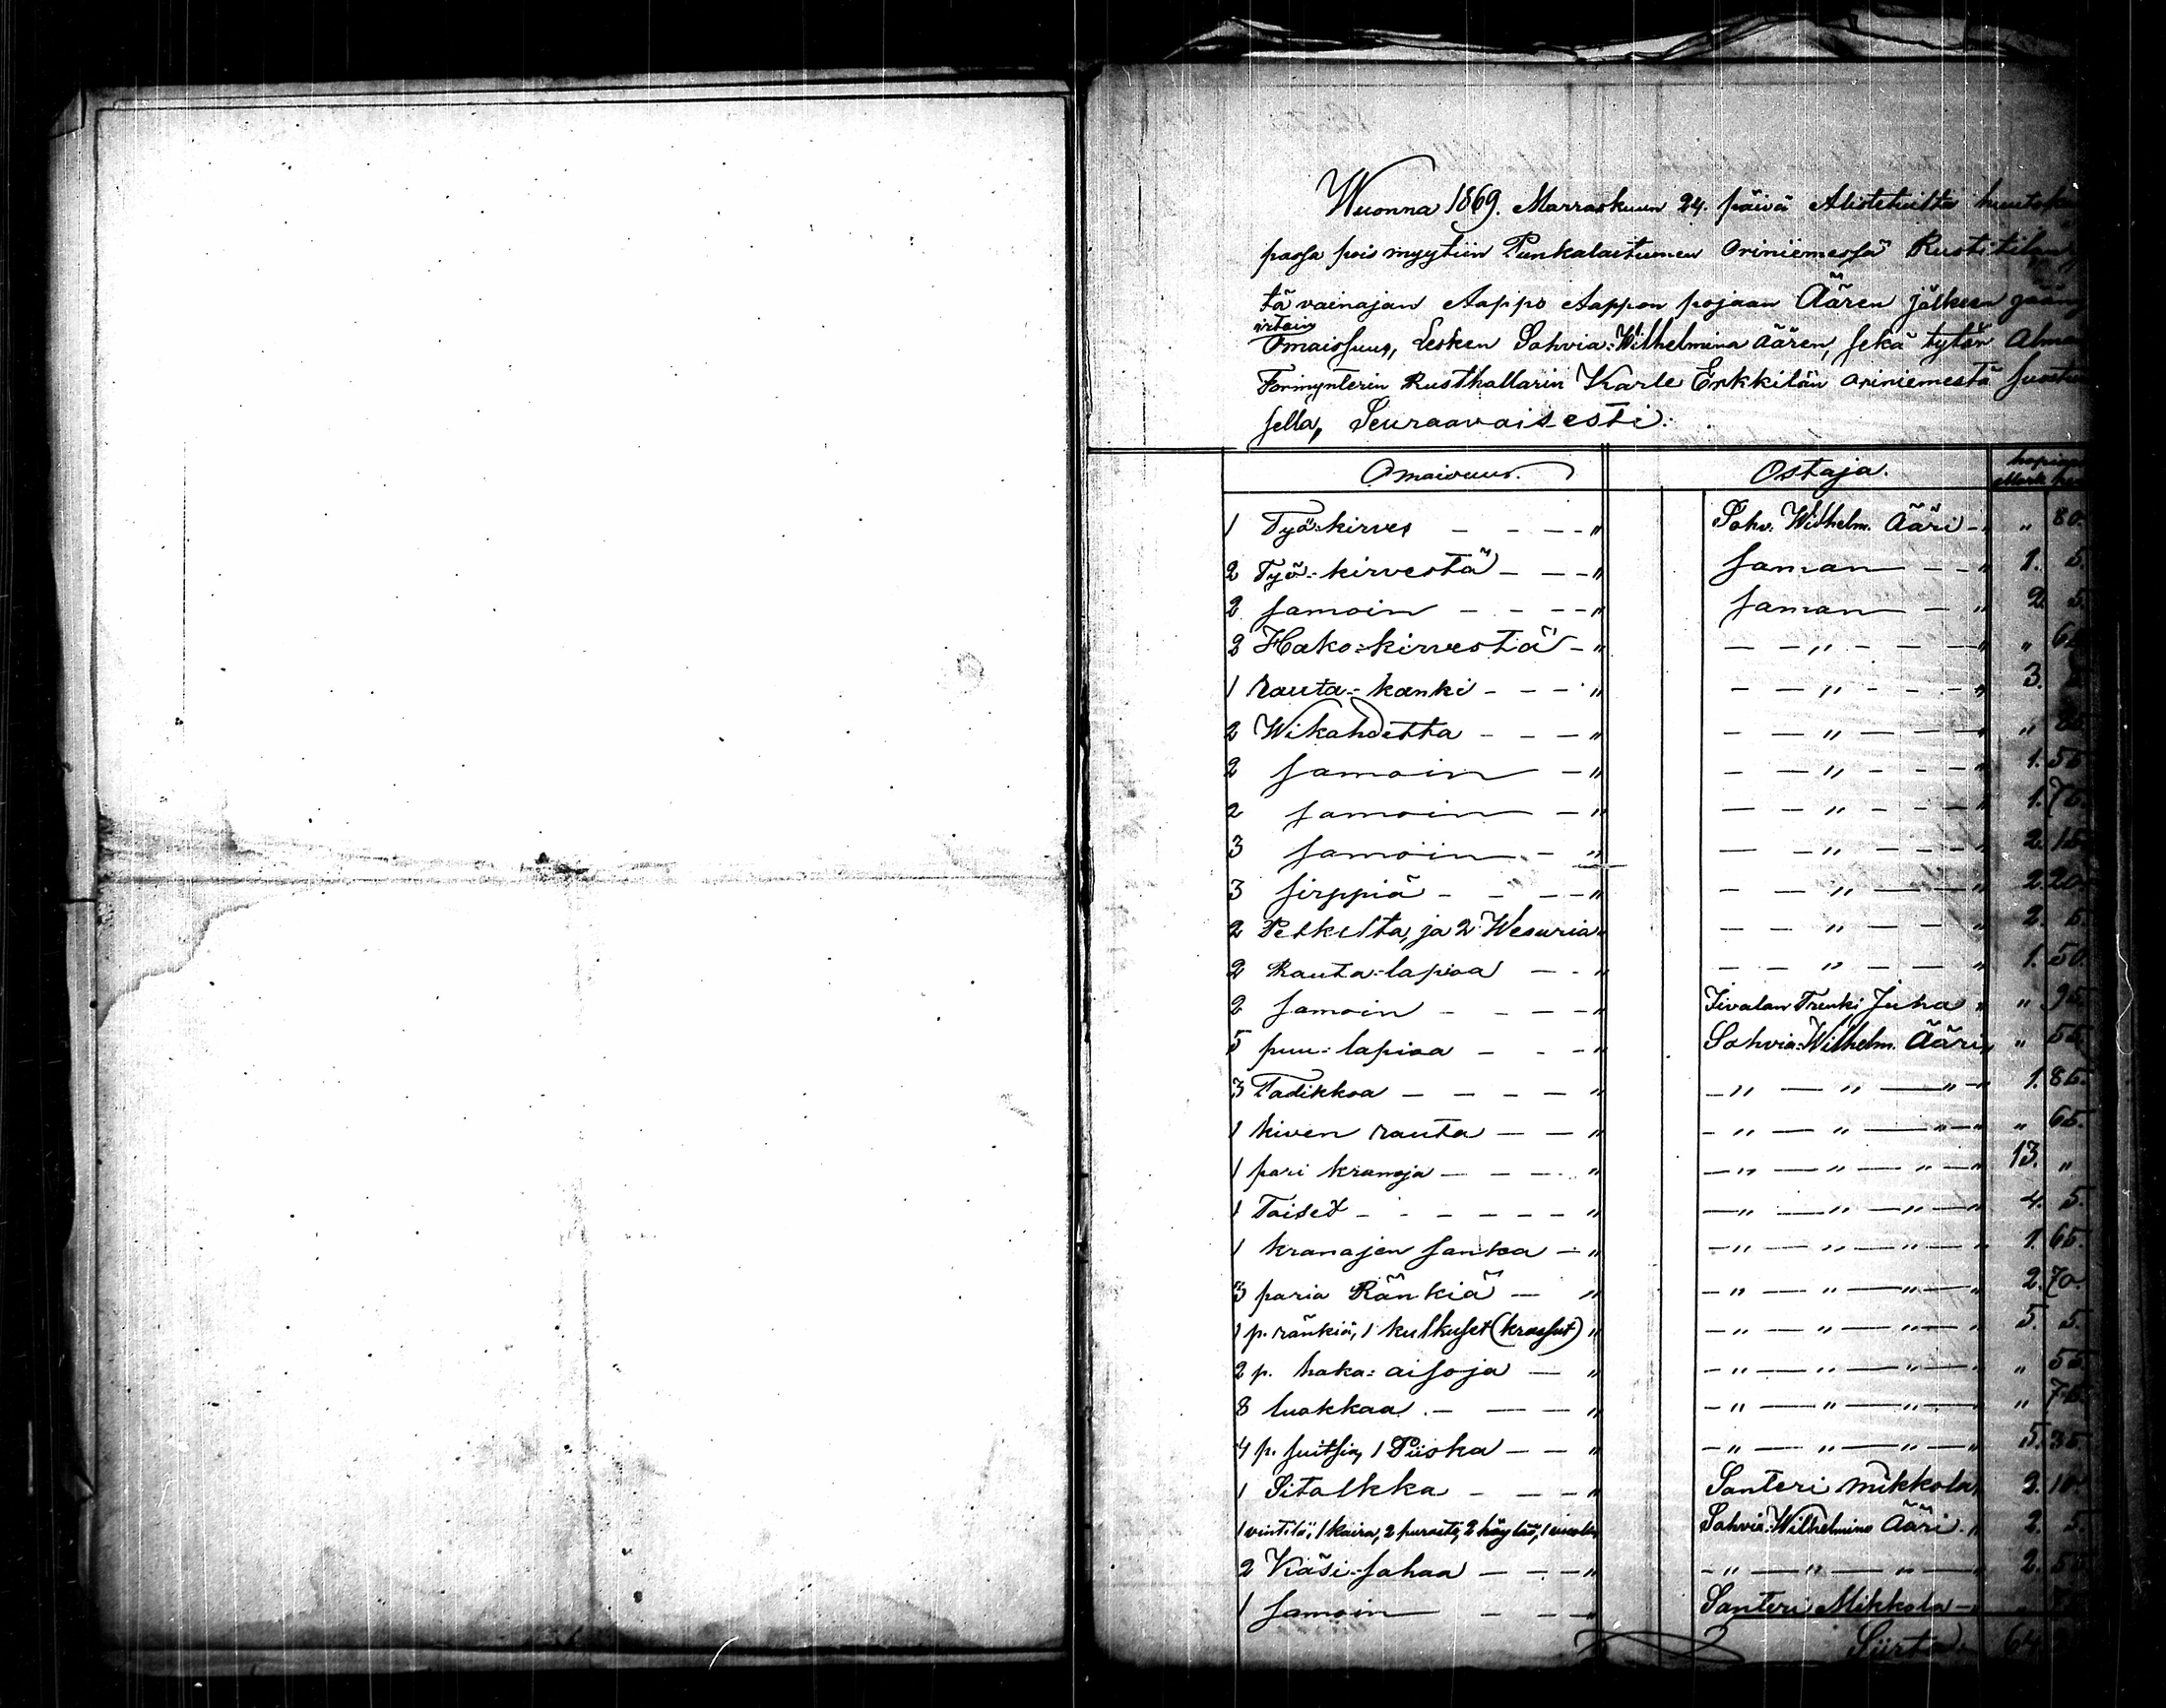 Wuonna 1869. Marraskuun 24. päivä Alistetuilta huutoka
passa pois myytiin Punkalaitumen Oriniemessä Rusti tila
tä vainajan Aappo Aappon pojaan Äären jälkeen jääny
irtain
Omaisuus, Lesken Sohvia: Wilhelmina Äären, sekä tytön Alma
Formynterin Rusthollarin Karle Erkkilän Oriniemestä suostu
sella, Seuraavaisesti:
Omaisuus. Ostaja. hopiaa
1 Työ-kirves - - - " Sohv. Wilhelm. Ääri - " " 80.
2 Työ-kirvestä - - - " Saman - - " 1. 5.
2 samoin - - - - " Saman - " 2. 5.
2 Hako-kirvestä - " - - " - - - "
1 Rauta-kanki - - - " - - " - - - " 3.
2 Wikahdetta - - - " - - " - - - "
2 samoin - " - - " - - - " 1. 55
2 samoin - " - - " - - - " 1. 75.
3 samoin - " - - " - - - " 2. 15
3 sirppiä - - - - " - - " - - " 2. 20
2 Petkelta, ja 2 Wesuria " - - " - - " 2. 5.
2 Rauta-lapioa - - " - - " - - " 1. 50.
2 samoin - - - - " Iivalan Trenki Juha " " 95.
5 puu-lapioa - - - " Sohvia: Wilhelm. Ääri " " 55.
3 Tadikkoa - - - - " - " - " - " - 1. 85.
1 kiven rauta - - " - " - " - " - " " 65.
1 pari kranoja - - - - " - " - " - " - " 13. "
1 Toiset - - - - - - " - " - " - " - " 4. 5.
1 kranajen sanka - " - " - " - " - " 1. 65.
3 paria Ränkiä - " - " - " - " - " 2. 70.
1 p. ränkiä, 1 kulkuset (krassut) " - " - " - " - " 5. 5.
2 p. haka-aisoja - " - " - " - " - " " 55.
8 luokkaa - - - " - " - " - " - " " 75.
4 p. suitsia, 1 Piiska - - " - " - " - " - " 5. 35.
1 Sitolkka - - - " Santeri Mikkola, 2. 10.
1 vintilö, 1 kaira, 2 purasta, 2 höylää, 1 Sohvia: Wilhelmina Ääri. " 2. 5.
2 Käsi-sahaa - - - " - " - " - " - " 2. 5
1 samoin - - - " Santeri Mikkola -
Siirto 64